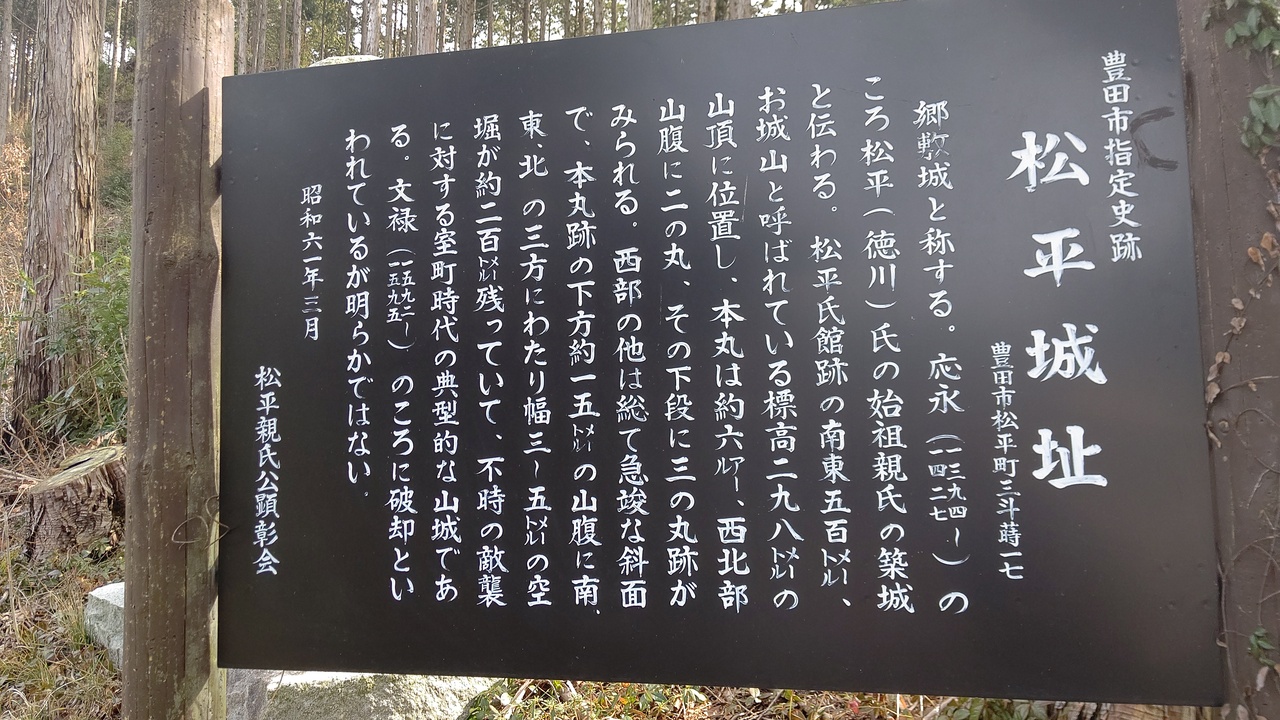 豊田市指定史跡
松平城址
豊田市松平町三斗蒔一七
郷敷城と称する。応永(一三九四~一四二七)の
ころ松平(徳川)氏の始祖親氏の築城
と伝わる。松平氏館跡の南東五百メートル、
お城山と呼ばれている標高二九八メートルの
山頂に位置し、本丸は約六アール、西北部
山腹に二の丸、その下段に三の丸跡が
みられる。西部の他は総て急竣な斜面
で、本丸跡の下方約一五メートルの山腹に南、
東、北の三方にわたり幅三~五メートルの空
堀が約二百メートル残っていて、不時の敵襲
に対する室町時代の典型的な山城であ
る。文禄(一五九二~一五九五)のころに破却とい
われているが明らかではない。
昭和六一年三月
松平親氏公顕彰会